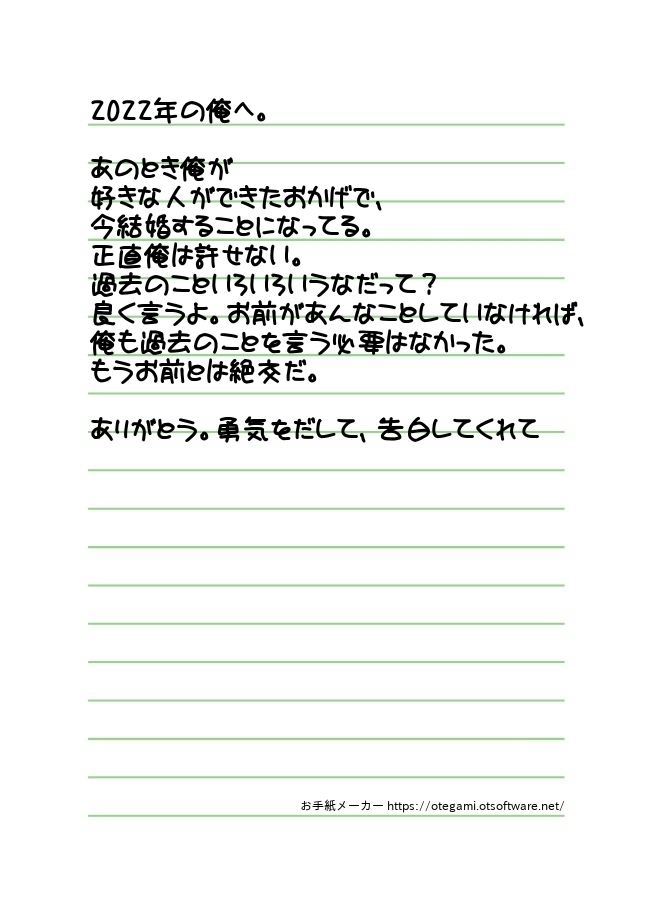 2022年の俺へ。
あのとき俺が
好きな人ができたおかげで、
今結婚することになってる。
正直俺は許せない。
過去のこといろいろいうなだって？
良く言うよ。お前があんなことしていなければ、
俺も過去のことを言う必要はなかった。
もうお前とは絶交だ。
ありがとう。勇気をだして、告白してくれて
お手紙メーカー https://otegami.otsoftware.net/